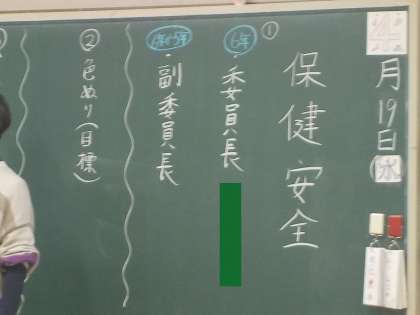 月19日(水)
保健安全
①
6年
・委員長
・副委員長
②
色ぬり(目標)